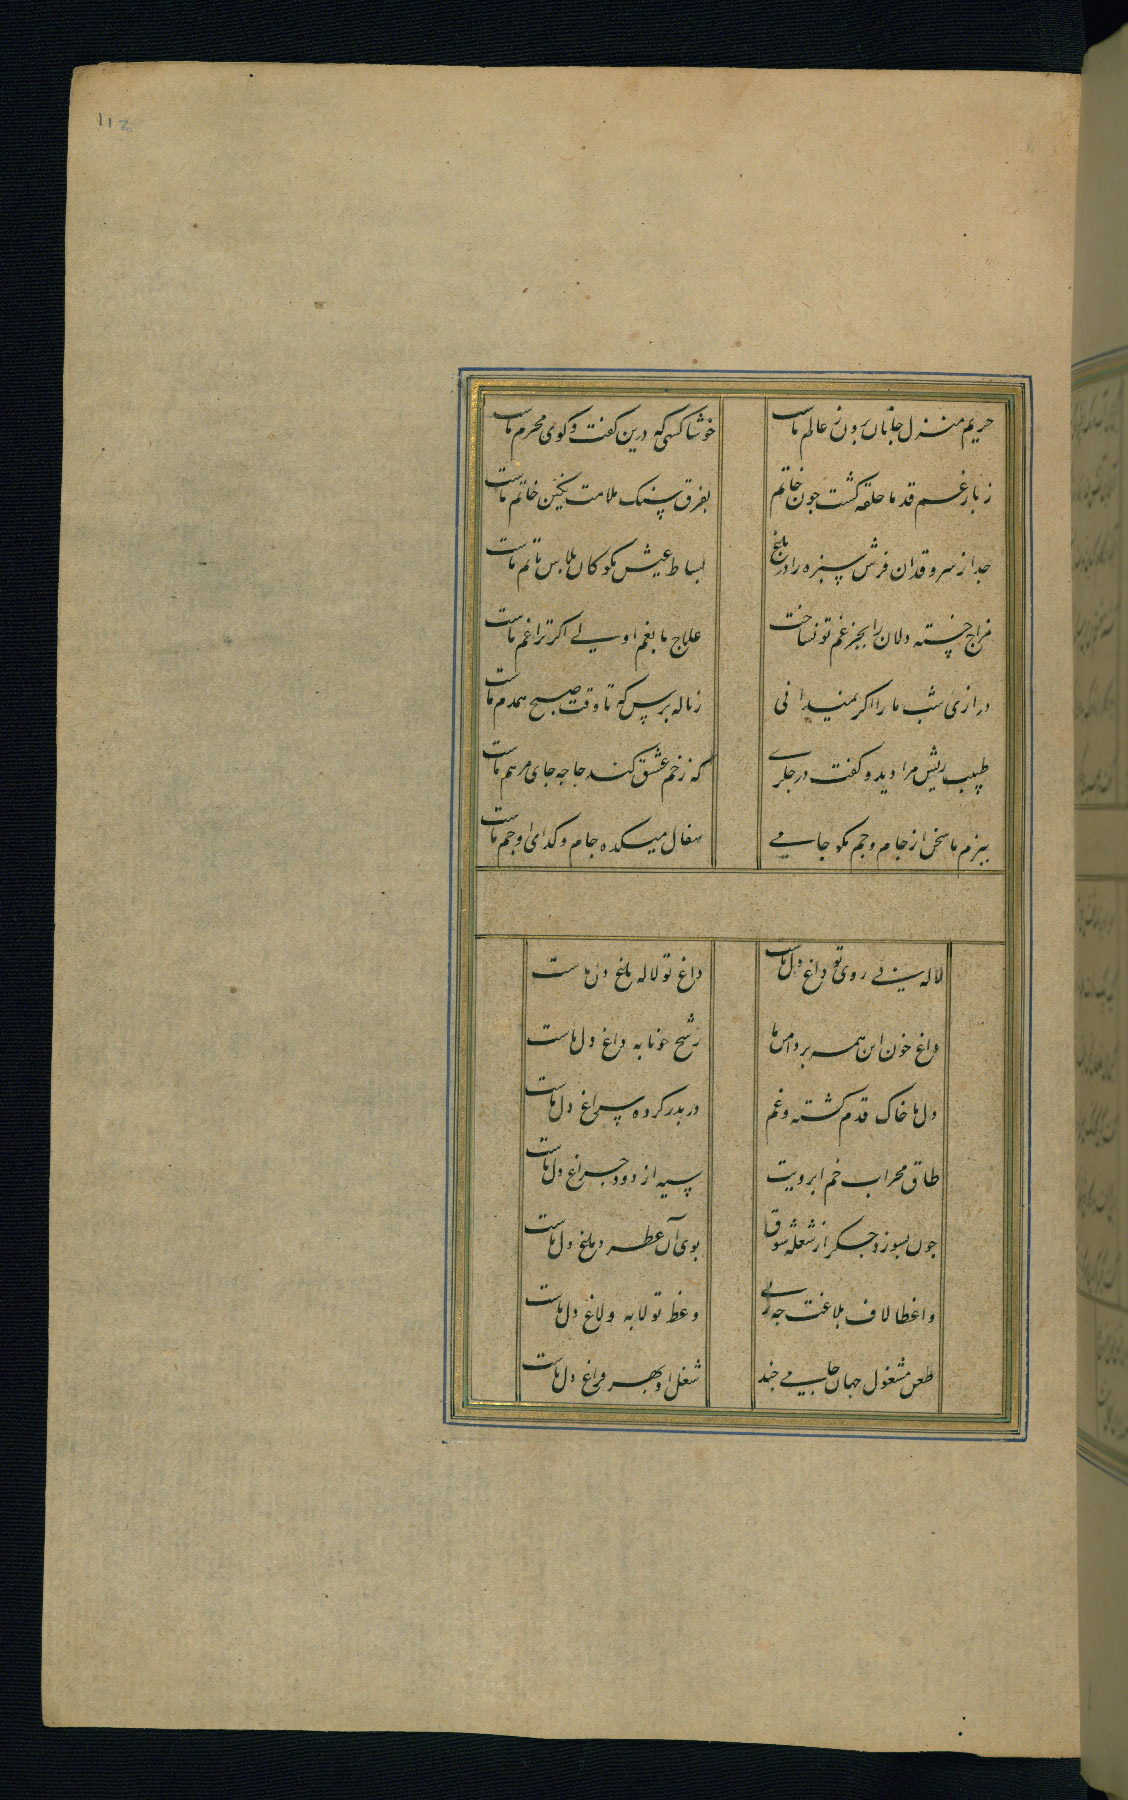 112
حریم منزل جانان برون ز عالم ماست
خوشا کسی که درین کفت و کوی محرم ماست
ز بار غم قد ما حلقه کشت جون خاتم
بفرق سنک ملامت نکین خاتم ماست
جدا ز سرو قدان فرش سبزه را در باغ
بساط عیش مکو کان پلاس ماتم ماست
مزاج خسته دلان را بجز غم تو نساخت
علاج ما بغم اولی اکر ترا غم ماست
درازی شب ما را اکر نمیدانی
ز ناله پرس که تا وقت صبح همدم ماست
طبیب ریش مرا دید و کفت در جکری
که زخم عشق کند جا جه جای مرهم ماست
ببزم ما سخن از جام و جم مکو جامی
سفال میکده جام و کدای او جم ماست
لاله بی روی تو داغ دل ماست
داغ تو لاله باغ دل ماست
داغ خون این همه بر دامن ما
رشح خونابه داغ دل ماست
دل ما خاک قدم کشته و غم
در بدر کرده سراغ دل ماست
طاق محراب خم ابرویت
سیه از دود جراغ دل ماست
جون بسوزد جکر از شعله شوق
بوی آن عطر دماغ دل ماست
واعظا لاف بلاغت جه زنی
وعظ تو لابه و لاغ دل ماست
طعن مشغول جهان جامی جند
شغل او بهر فراغ دل ماست